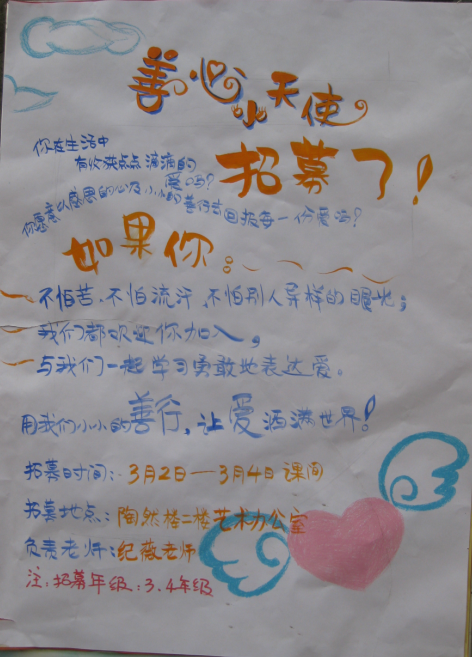 善心小天使
招募了!
你在生活中
有收获点点滴滴的
爱吗?
你愿意以感恩的心及小小的善行去回报每一份爱吗?
如果你:
不怕苦、不怕流汗、不怕别人异样的眼光;
我们都欢迎你加入,
与我们一起学习勇敢地表达爱。
用我们小小的善行,让爱洒满世界!
招募时间:3月2日—3月4日课间
招募地点:陶然楼二楼艺术办公室
负责老师:纪薇老师
注:招募年级:3、4年级